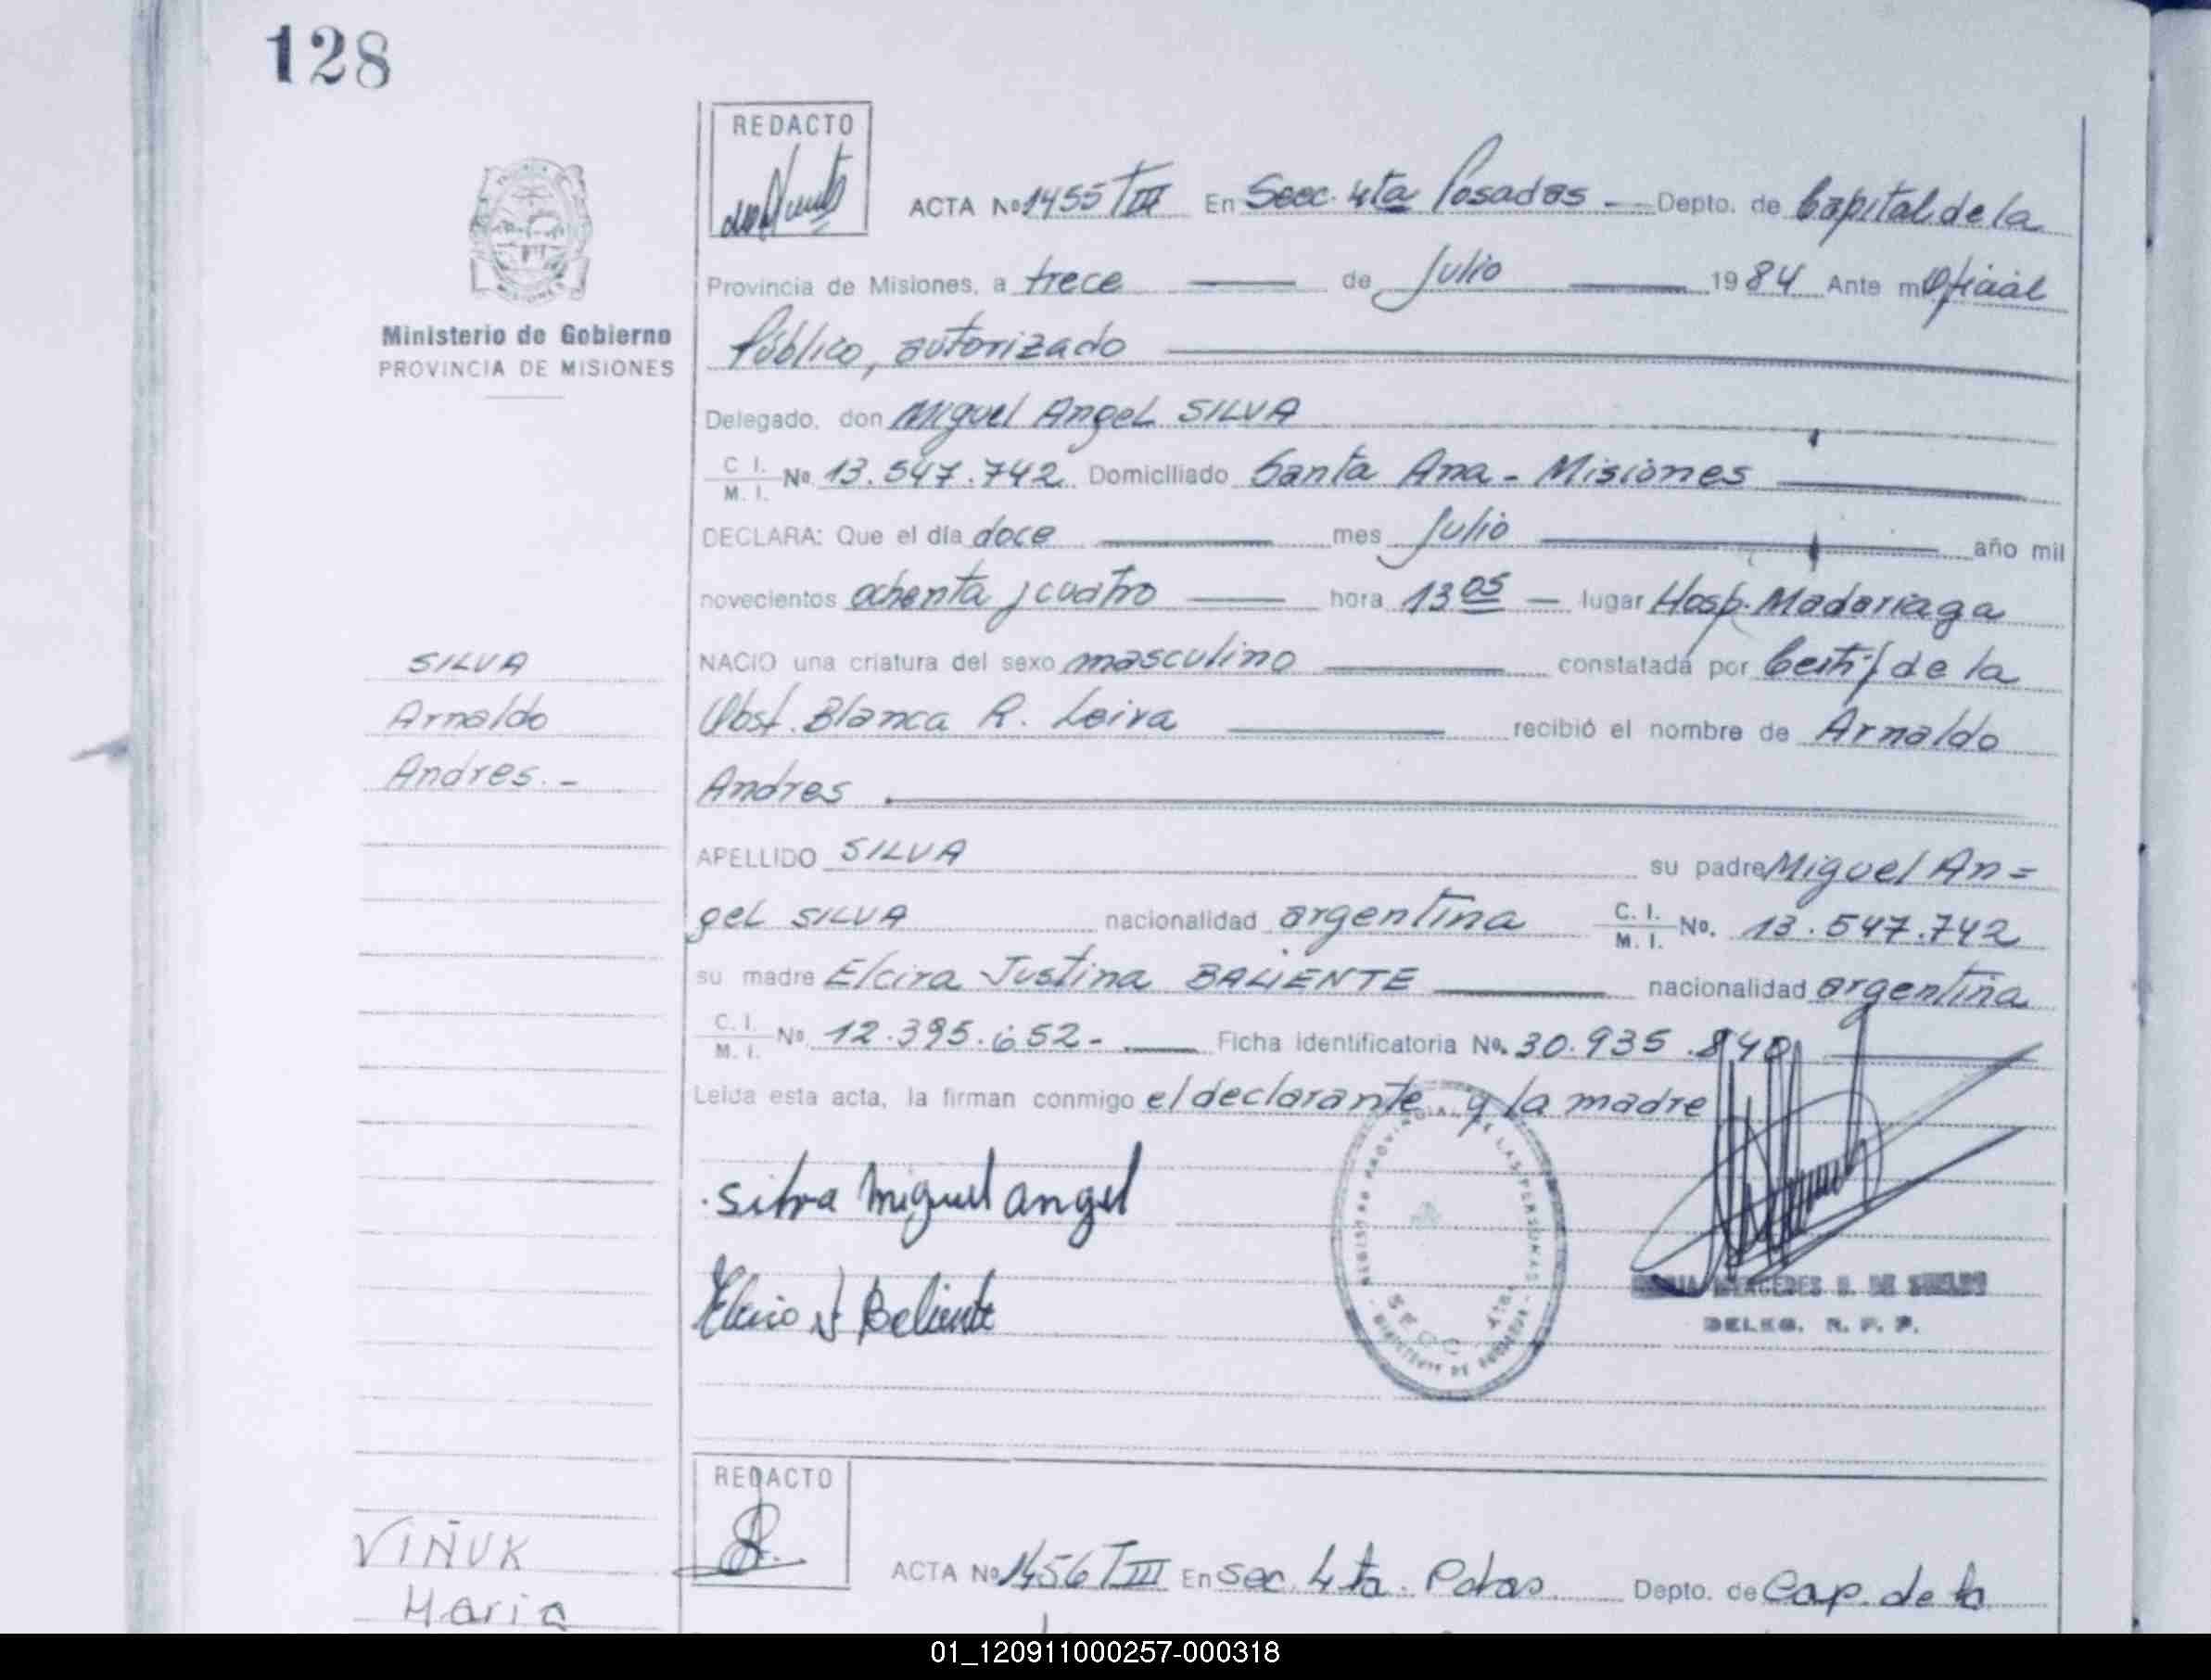 128
REDACTO
ACTA No 1455 TIII En Secc. 4ta Posadas — Depto. de Capital de la
Provincia de Misiones, a trece — de Julio — 1984 Ante mí Oficial
Ministerio de Gobierno
PROVINCIA DE MISIONES
Público, autorizado
Delegado, don Miguel Angel SILVA
C. I. / M. I. No. 13.547.742 Domiciliado Santa Ana - Misiones
DECLARA: Que el día doce — mes Julio — año mil
novecientos ochenta y cuatro — hora 13 05 — lugar Hosp. Madariaga
NACIO una criatura del sexo masculino — constatada por Certif de la
Obst. Blanca R. Leiva — recibió el nombre de Arnaldo
Andres
SILVA
Arnaldo
Andres. -
APELLIDO SILVA su padre Miguel An=
gel SILVA nacionalidad argentina C. I. / M. I. No. 13.547.742
su madre Elcira Justina BALIENTE — nacionalidad argentina
C. I. / M. I. No. 12.395.652- — Ficha identificatoria No. 30.935.840
Leída esta acta, la firman conmigo el declarante y la madre
Silva Miguel angel
Elcira J Beliente
REGISTRO PROVINCIAL DE LAS PERSONAS
SECC. 4TA
MERCEDES
DE
DELEG. R. P. P.
REDACTO
VIÑUK
Maria
ACTA No 1456 TIII En Sec. 4ta. Pdas. Depto. de Cap. de la
01_120911000257-000318